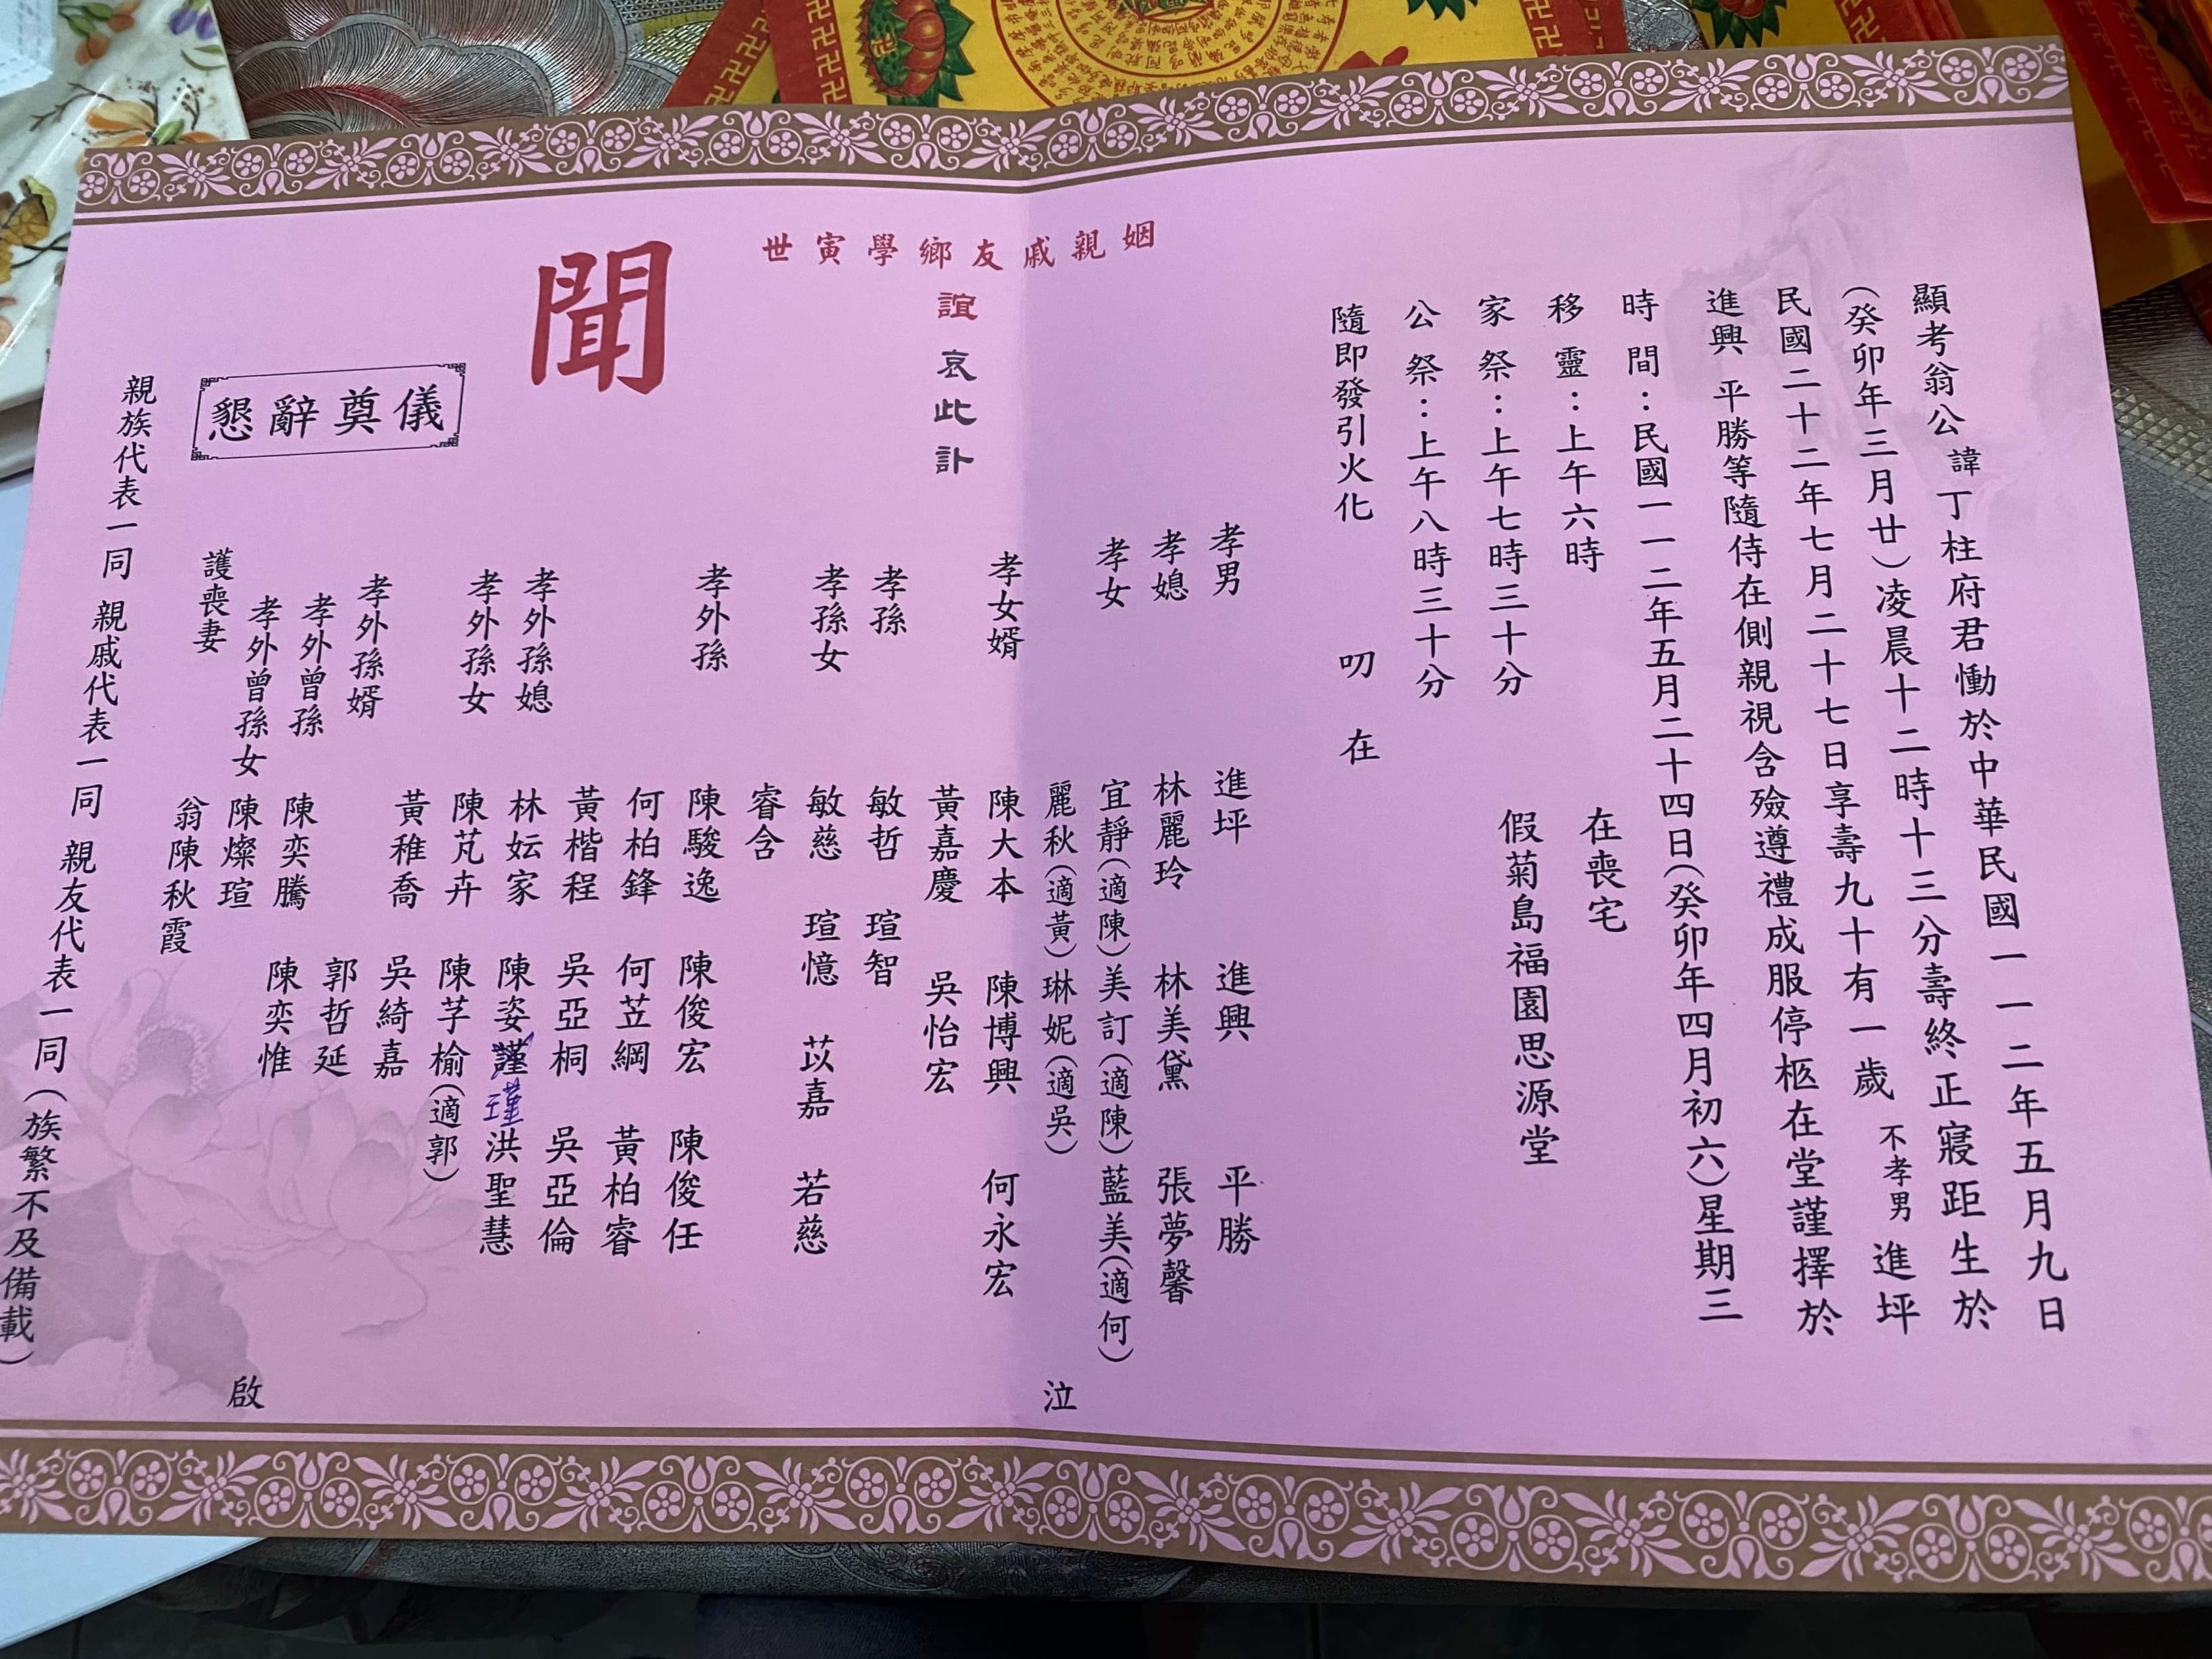 顯考翁公諱丁柱府君慟於中華民國一一二年五月九日
(癸卯年三月廿)凌晨十二時十三分壽終正寢距生於
民國二十二年七月二十七日享壽九十有一歲 不孝男 進坪
進興 平勝等隨侍在側親視含殮遵禮成服停柩在堂謹擇於
時間:民國一一二年五月二十四日(癸卯年四月初六)星期三
移靈:上午六時 在喪宅
家祭:上午七時三十分 假菊島福園思源堂
公祭:上午八時三十分
隨即發引火化 叨在
姻親戚友鄉學寅世
誼 哀此訃
聞
孝男 進坪 進興 平勝
孝媳 林麗玲 林美黛 張夢馨
孝女 宜靜(適陳) 美訂(適陳) 藍美(適何)
麗秋(適黃) 琳妮(適吳) 泣
孝女婿 陳大本 陳博興 何永宏
黃嘉慶 吳怡宏
孝孫 敏哲 瑄智
孝孫女 敏慈 瑄憶 苡嘉 若慈
睿含
孝外孫 陳駿逸 陳俊宏 陳俊任
何柏鋒 何苙綱 黃柏睿
黃楷程 吳亞桐 吳亞倫
孝外孫媳 林妘家 陳姿謹 瑾 洪聖慧
孝外孫女 陳芃卉 陳芓榆(適郭)
黃稚喬 吳綺嘉
孝外孫婿 郭哲延
孝外曾孫 陳奕騰 陳奕惟
孝外曾孫女 陳燦瑄
護喪妻 翁陳秋霞
啟
懇辭奠儀
親族代表一同 親戚代表一同 親友代表一同(族繁不及備載)